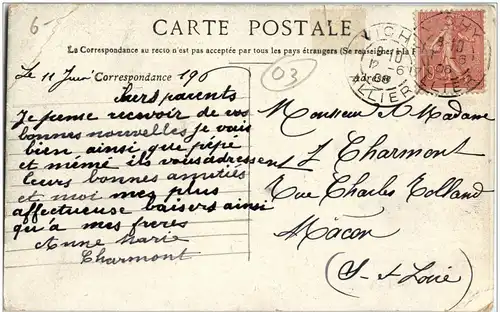 6-
CARTE POSTALE
La Correspondance au recto n'est pas acceptée par tous les pays étrangers (Se renseigner à la
Le 11 Juin Correspondance 190
03
Adresse
VICHY
ALLIER
Chers parents
Je pense recevoir de vos
bonnes nouvelles je vais
bien ainsi que pépé
et mémé ils vous adressent
leurs bonnes amitiés
et moi mes plus
affectueuse baisers ainsi
qu'a mes freres
Anne Marie
Charmont
Monsieur & Madame
J Charmont
Rue Charles Rolland
Macon
(S-et-Loire)